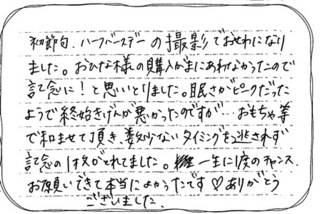 初節句、ハーフバースデーの撮影でおせわになり
ました。おひな様の購入がまにあわなかったので
記念に!と思いとりました。眠さがピークだった
ようで終始きげんが悪かったのですが…おもちゃ等
で和ませて頂き、数少ないタイミングを逃さず
記念の1枚がとれました。一生に1度のチャンス、
お願いできて本当によかったです♡ありがとう
ございました。